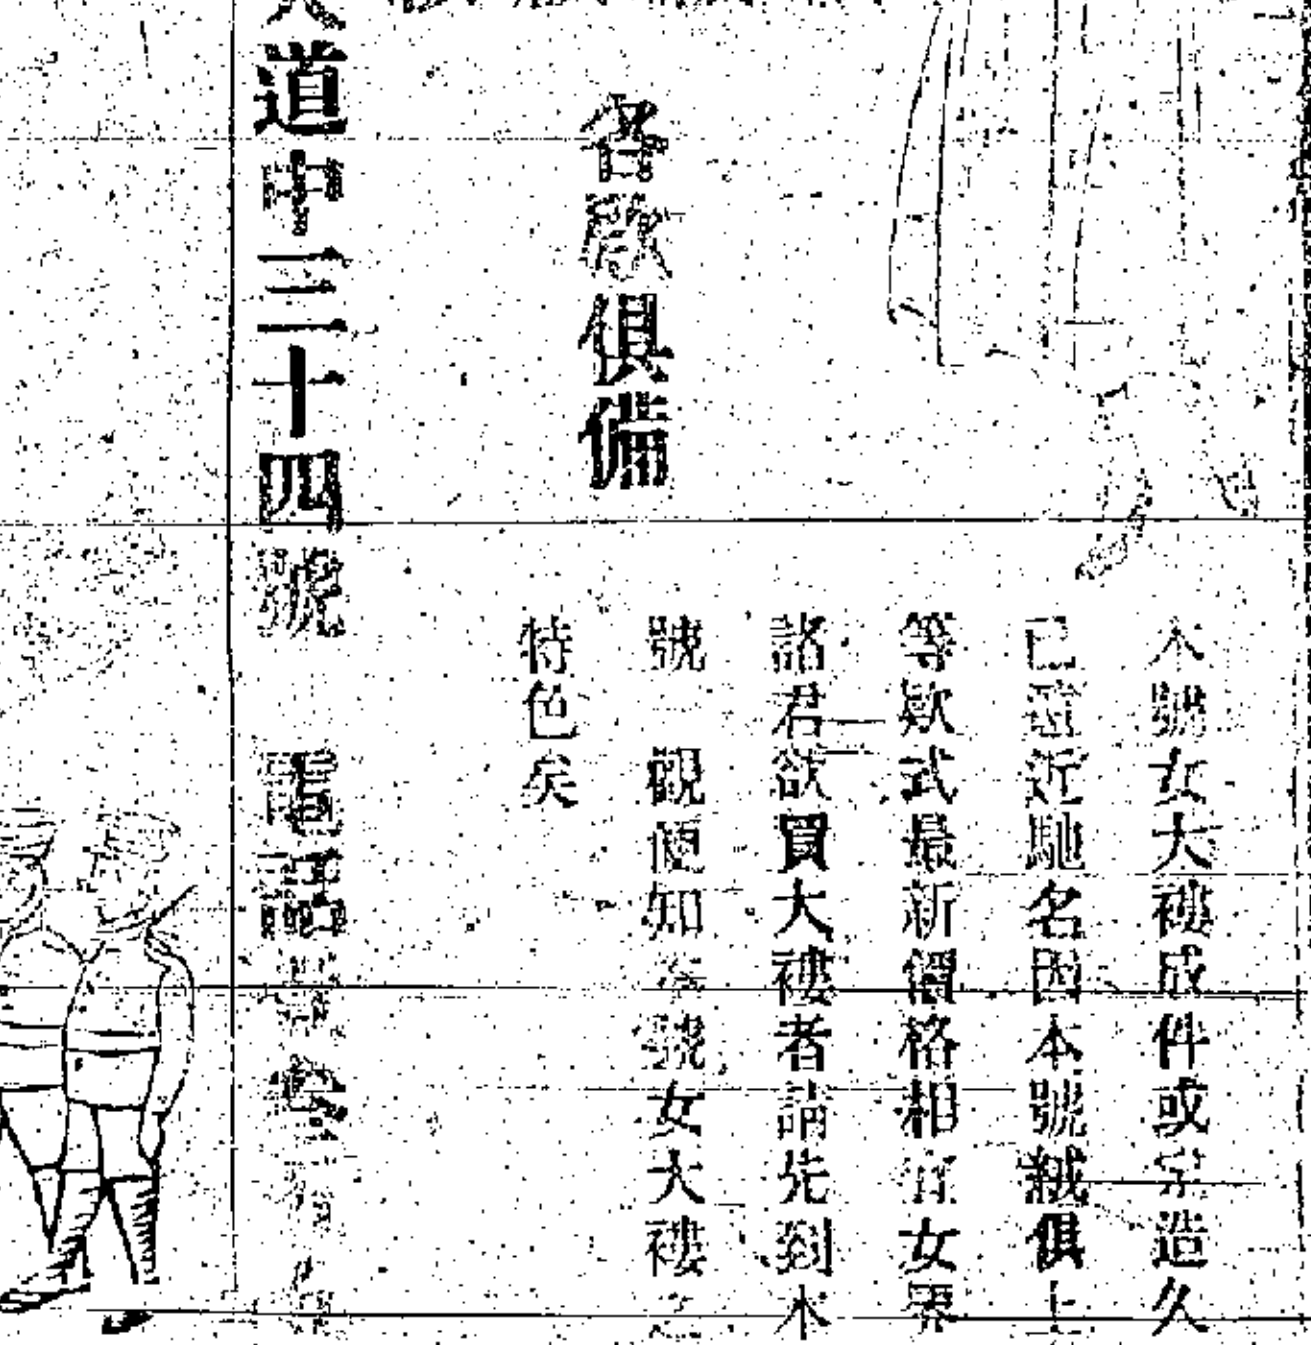 本號女大褸成件或定造久
已遠近馳名因本號絨俱上
等欵式最新價格相宜女界
諸君欲買大褸者請先到本
號一觀便知本號女大褸之
特色矣
各欵俱備
大道中三十四號 電話